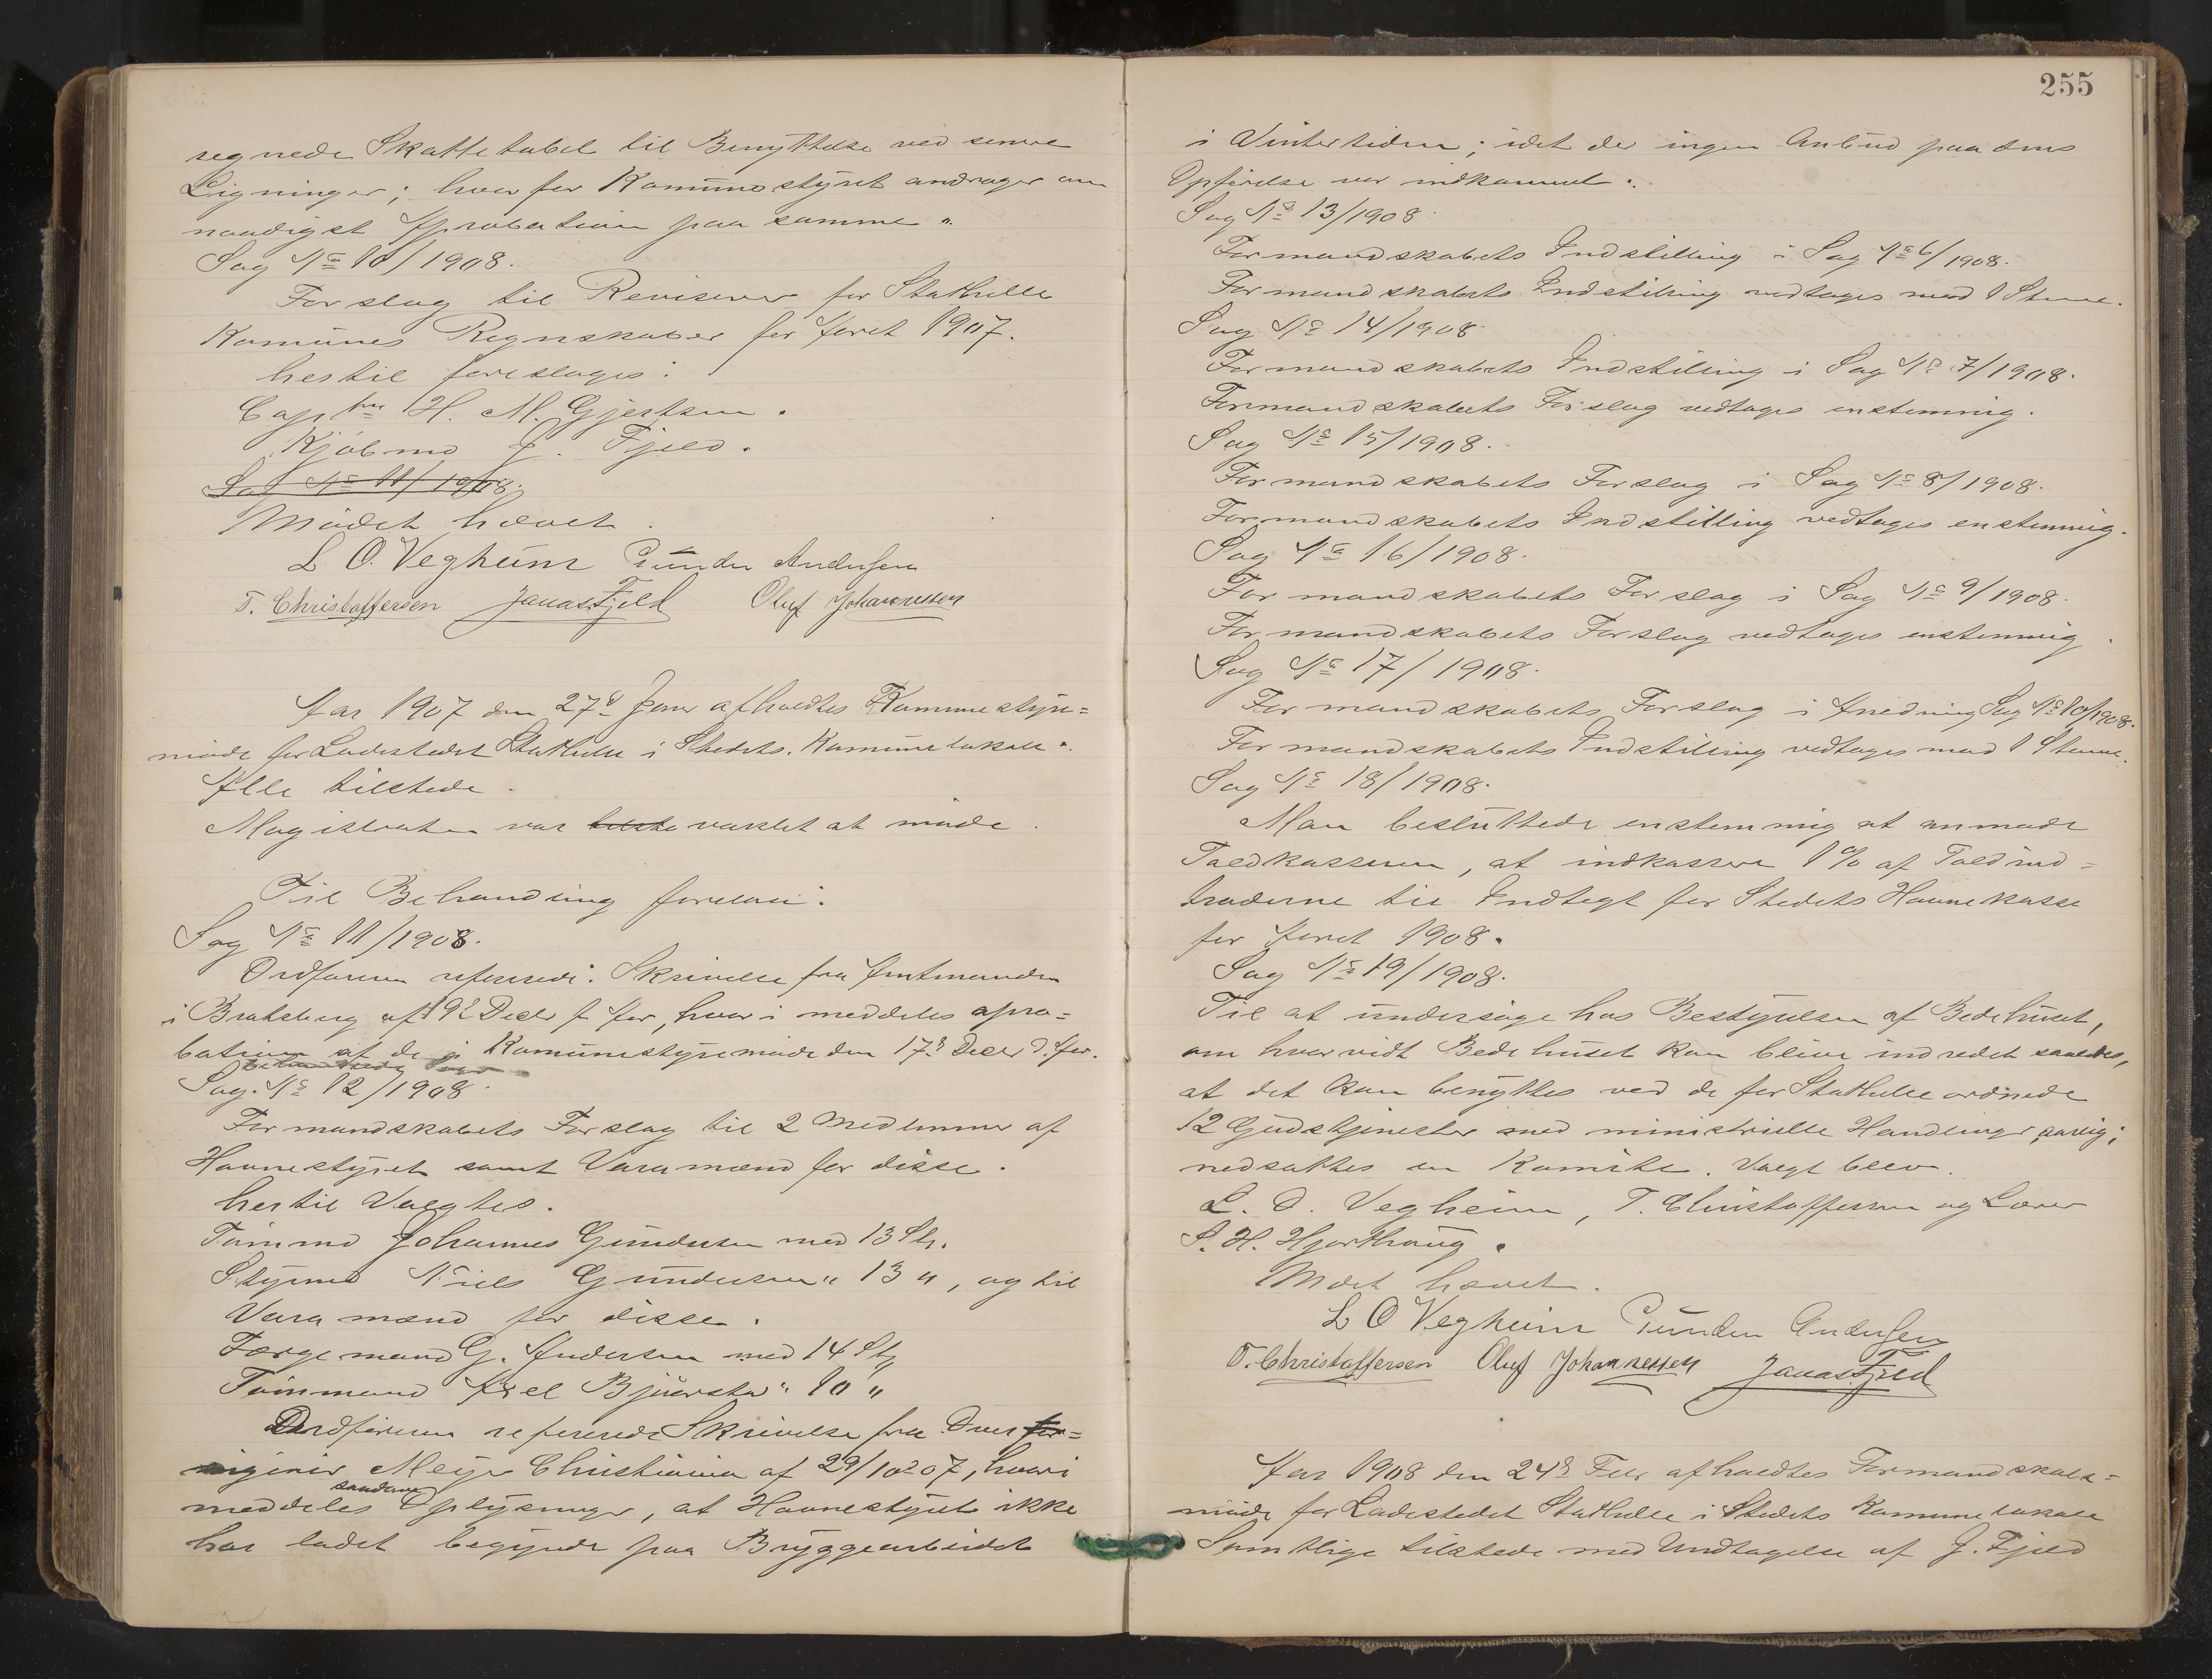 regnede Skattetabel til Benyttelse ved senere
Ligninger; hvorfor Komunestyret andrager om
naadigst Aprobation paa samme.
Sag No 10/1908.
Forslag til Revisorer for Stathelle
Komunes Regnskaber for Aaret 1907.
hertil foreslages:
Capt H. M. Gjertsen.
Kjøbmd J. Fjeld.
Sag No 11/1908.
Mødet hævet.
L. O. Vegheim Gunder Andersen
T. Christoffersen Jonas Fjeld Oluf Johannessen
Aar 1907 den 27d Janr afholdtes Komunestyre=
møde for Ladestedet Stathelle i Stedets Komunelokale.
Alle tilstede.
Magistraten var varslet at møde.
Til Behandling forelaa:
Sag No 11/1908.
Ordføreren refererede: Skrivelse fra Amtmanden
i Bratsberg af 19d Decbr f. Aar, hvori meddeles apro=
bation af de i Komunestyremøde den 17d Decbr f. Aar.
behandlede
Sag No 12/1908
Formandskabets Forslag til 2 Medlemmer af
Havnestyret samt Varamænd for disse.
hertil Valgtes.
Tømmd Johannes Gundersen med 13 St.
Styrmd Niels Gundersen " 13 ", og til
Varamænd for disse.
Færgemand G. Andersen med 14 St,
Tømmand Axel Bjuersta " 10 "
Ordføreren refererede Skrivelse fra Over=
Meyer Christiania af 29/10 07, hvori
meddeles saadanne Oplysninger, at Havnestyret ikke
har ladet begynde paa Bryggearbeidet
255
i Vintertiden; idet der ingen Anbud paa dens
Opførelse var indkommet.
Sag No 13/1908.
Formandskabets Indstilling i Sag No 6/1908.
Formandskabets Indstilling vedtages mod 1 Stemme.
Sag No 14/1908
Formandskabets Indstilling i Sag No 7/1908.
Formandskabets Forslag vedtages enstemmig.
Sag No 15/1908.
Formandskabets Forslag i Sag No 8/1908.
Formandskabets Indstilling vedtages enstemmig.
Sag No 16/1908.
Formandskabets Forslag i Sag No 9/1908.
Formandskabets Forslag vedtages enstemmig.
Sag No 17/1908.
Formandskabets Forslag i Anledning Sag No 10/1908.
Formandskabets Indstilling vedtages mod 1 Stemme.
Sag No 18/1908.
Man besluttede enstemmig at anmode
Toldkasseren, at indkassere 1% af Toldind=
traderne til Indtægt for Stedets Havnekasse
for Aaret 1908.
Sag No 19/1908.
Til at undersøge hos Bestyrelsen af Bedehuset,
om hvorvidt Bedehuset kan blive indredet saaledes,
at det kan benyttes ved de for Stathelle ordnede
12 Gudstjenester med ministrielle Handlinger aarlig;
nedsattes en Komite. Valgt blev.
L. O. Vegheim, T. Christoffersen og Lærer
S. H. Hjorthaug.
Mødet hævet.
L O Vegheim Gunder Andersen
T. Christoffersen Oluf Johannessen Jonas Fjeld
Aar 1908 den 24d Febr afholdtes Formandskabs=
møde for Ladestedet Stathelle i Stedets Komunelokale
Samtlige tilstede med Undtagelse af J. Fjeld